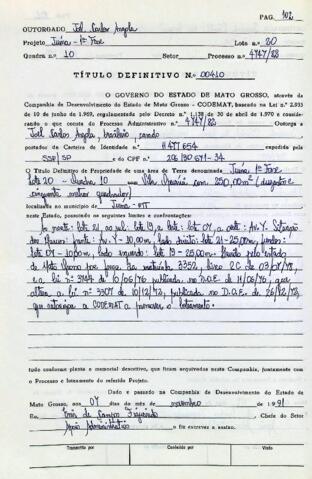 PAG. 102
OUTORGADO Joel Carlos Angola
Projeto Juína - 1ª Fase Lote n.º 20
Quadra n.º 10 Setor Processo n.º 4747/82
TÍTULO DEFINITIVO N.º 00410
O GOVERNO DO ESTADO DE MATO GROSSO, através da
Companhia de Desenvolvimento do Estado de Mato Grosso - CODEMAT, baseado na Lei n.º 2.933
10 de junho de 1969, regulamentada pelo Decreto n.º 1.138 de 30 de abril de 1970 e conside-
rando o que consta do Processo Administrativo n.º 4747/82 Outorga a
Joel Carlos Angola, brasileiro, casado
portador da Carteira de Identidade n.º H 477 654 expedida pela
SSP/SP e do CPF n.º 206 130 671-34
O Título Definitivo de Propriedade de uma área de Terra denominada Juína, 1ª Fase
Lote 20 - Quadra 10 com 250,00m² (duzentos e
cinquenta metros quadrados)
localizada no município de Juína - MT
neste Estado, possuindo os seguintes limites e confrontações:
Ao norte: lote 21, ao sul: lote 19, a leste: lote 07, a oeste: Av. Y. Situação
frente: Av. Y - 10,00m, lado direito: lote 21 - 25,00m, fundos:
lote 07 - 10,00m, lado esquerdo: lote 19 - 25,00m
de Mato Grosso matrícula 3352, livro 2C de 03/07/78,
e a lei nº 3744 de 10/06/76 publicada no D.O.E. de 11/06/76, que
altera a lei nº 3307 de 10/12/72, publicada no D.O.E. de 26/12/72,
que autoriza a CODEMAT a promover o loteamento.
tudo conforme planta e memorial descritivo, que ficam arquivados nesta Companhia, juntamente com
o Processo e lotamento do referido Projeto.
Dado e passado na Companhia de Desenvolvimento do Estado de
Mato Grosso, aos 07 dias do mês de novembro de 1991
Eu, de Campos Figueiredo, Chefe do Setor
Apoio Administrativo o fiz escrever e assino.
Transcrito por Conferido por Visto